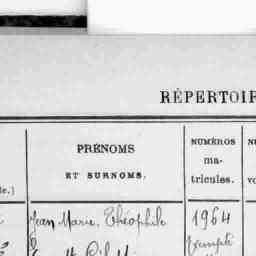 RÉPERTOIR
PRÉNOMS
ET SURNOMS.
NUMÉROS
ma-
tricules.
Jean Marie, Théophile
1964